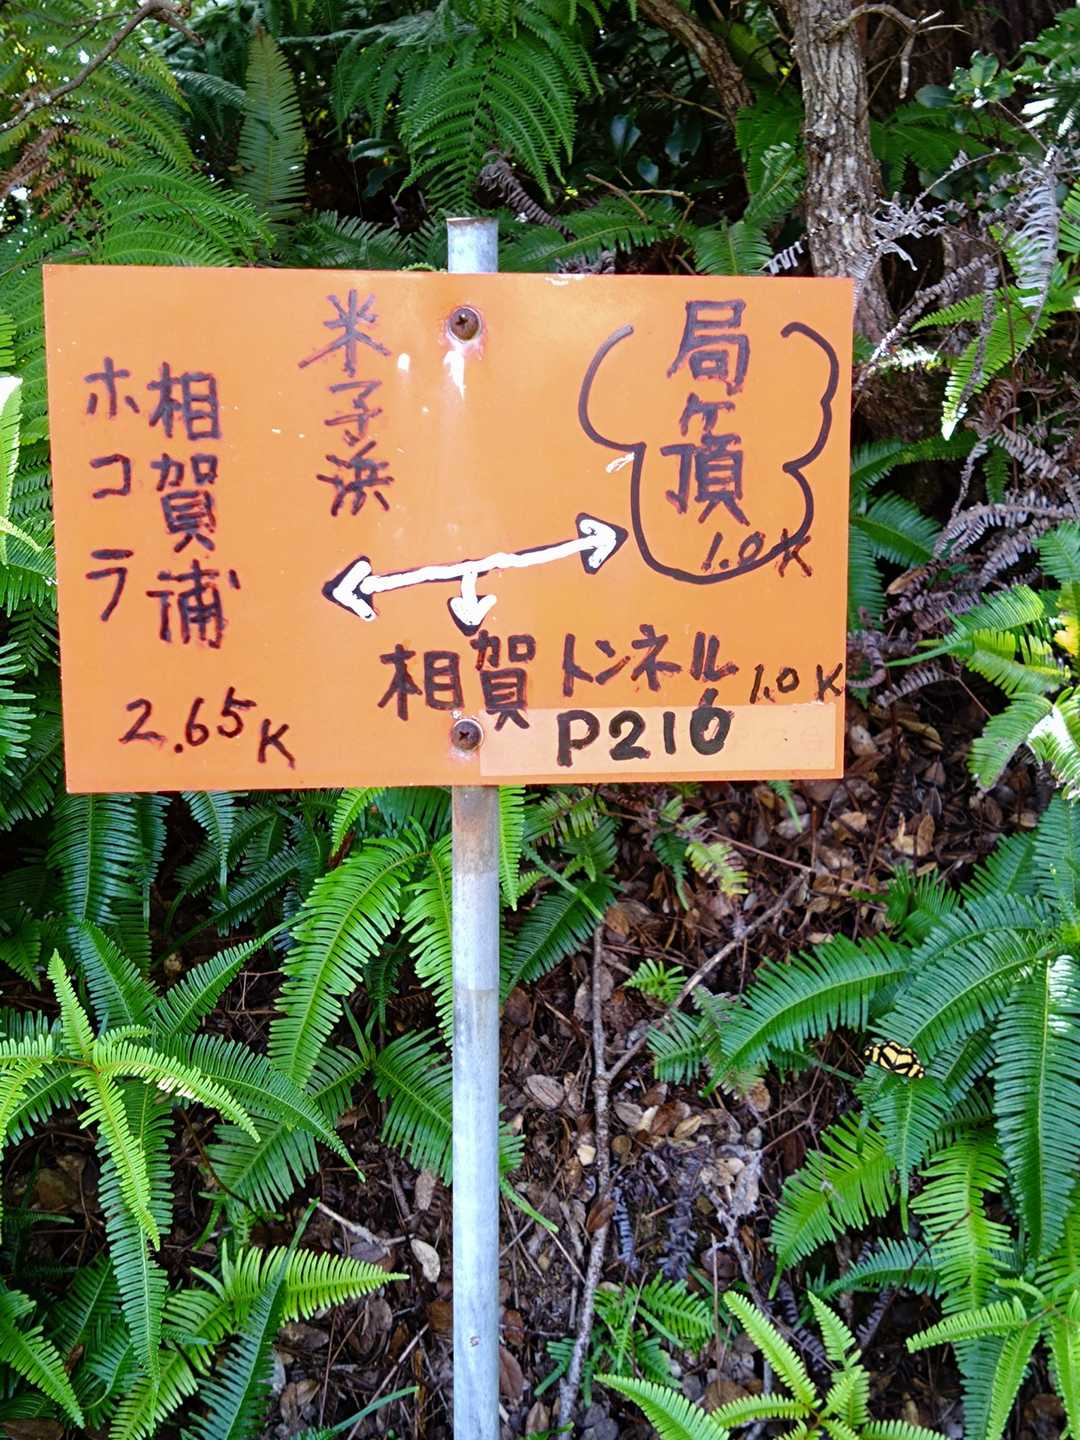 局ヶ頂
1.0K
米子浜
相賀浦
ホコラ
2.65K
相賀トンネル 1.0K
P216